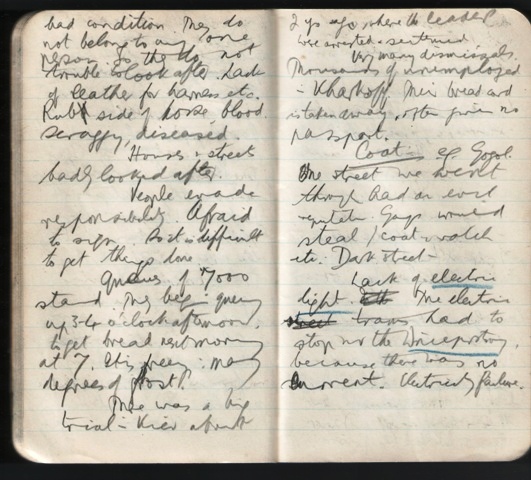 bad condition. They do
not belong to any one
person so they do not
trouble to look after. Lack
of leather for harness etc.
Rubs side of horse, blood.
Scraggy, diseased.
Houses & streets
badly looked after.
People evade
responsibility. Afraid
to sign. So it is difficult
to get things done.
Queues of 7000
stand. They begin queuing
up 3-4 o'clock afternoon,
to get bread next morning
at 7. It is freezing: many
degrees of frost.
There was a big
trial - Kiev about
2 yrs ago, where the leaders
were arrested & sentenced
Very many dismissals.
Thousands of unemployed
in Kharkoff. Their bread card
is taken away, often given no
passport.
Coat. cf. Gogol.
One street we went
through had an evil
reputation. Gangs would
steal / coat, watch
etc. Dark street -
Lack of electric
light. The electric
street trams had to
stop in the
because there was no
current. Electricity failure.